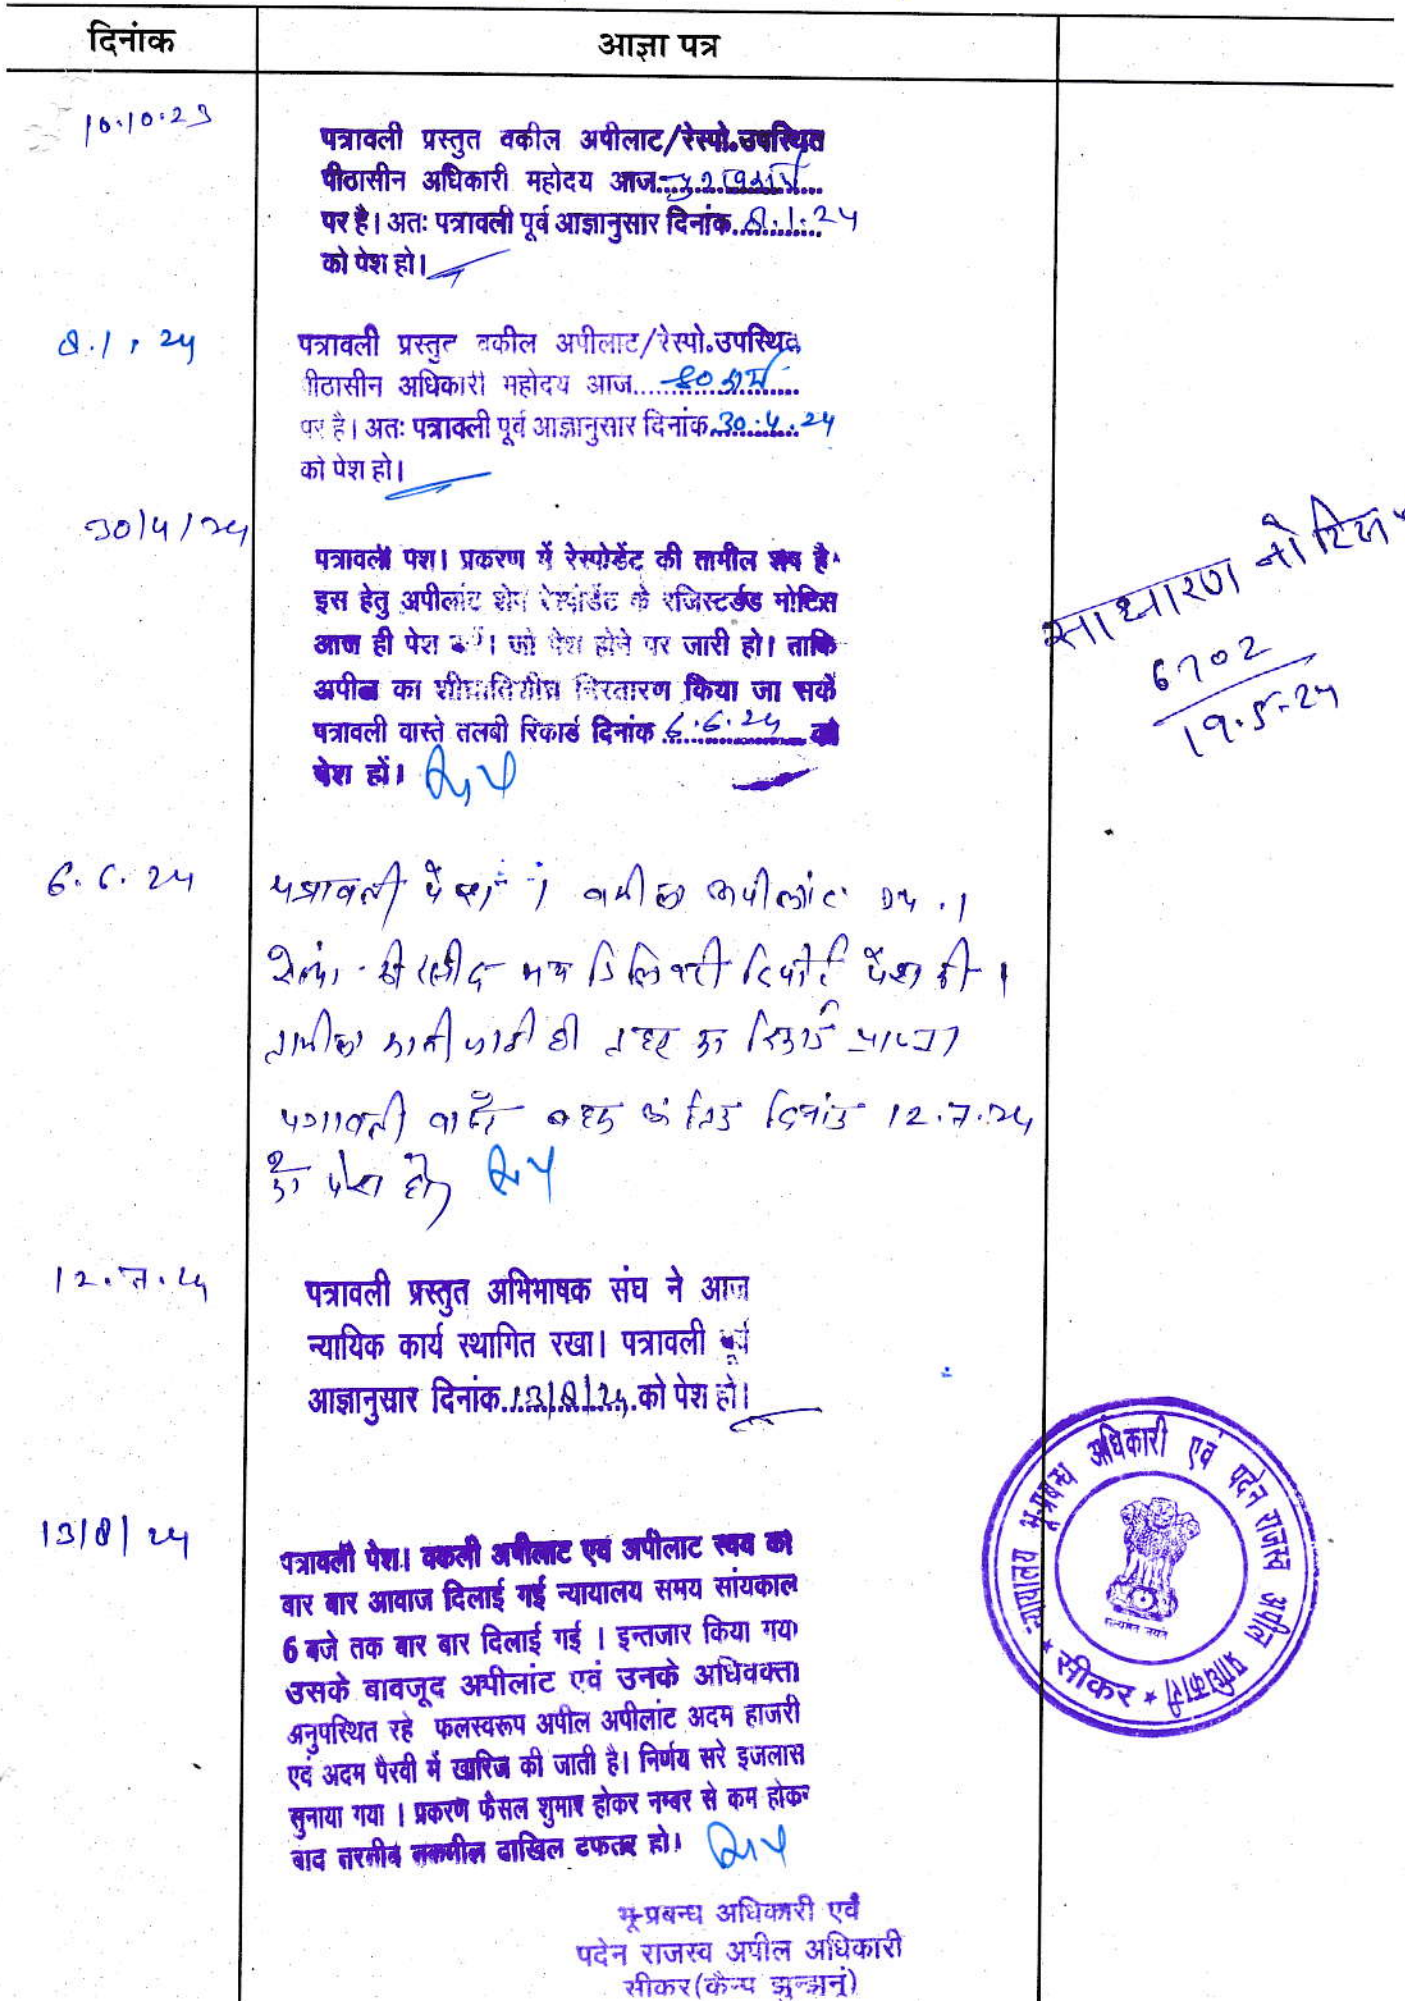 दिनांक
आज्ञा पत्र
10.10.23
पत्रावली प्रस्तुत वकील अपीलाट/रेस्पो.उपस्थित
पीठासीन अधिकारी महोदय आज
पर है। अतः पत्रावली पूर्व आज्ञानुसार दिनांक 8.1.24
को पेश हो।
8.1.24
पत्रावली प्रस्तुत वकील अपीलाट/रेस्पो.उपस्थित
पीठासीन अधिकारी महोदय आज
पर है। अतः पत्रावली पूर्व आज्ञानुसार दिनांक 30.4.24
को पेश हो।
30/4/24
पत्रावली पेश। प्रकरण में रेस्पोडेंट की तामील शेष है
इस हेतु अपीलांट शेष रेस्पोडेंट के रजिस्टर्ड नोटिस
आज ही पेश करें। जो पेश होने पर जारी हो। ताकि
अपील का शीघ्रातिशीघ्र निस्तारण किया जा सके
पत्रावली वास्ते तलबी रिकार्ड दिनांक 6.6.24 को
पेश हों।
साधारण नोटिस
6702
19.5.24
6.6.24
पत्रावली पेश। वकील अपीलांट उप.।
रसीद मय डिलिवरी रिपोर्ट पेश की।
तामील मानी जाती है रिकार्ड प्राप्त।
पत्रावली वास्ते बहस दिनांक 12.7.24
को पेश हो।
12.7.24
पत्रावली प्रस्तुत अभिभाषक संघ ने आज
न्यायिक कार्य स्थागित रखा। पत्रावली पूर्व
आज्ञानुसार दिनांक 13/8/24 को पेश हो।
न्यायालय भू-प्रबन्ध अधिकारी एवं पदेन राजस्व अपील प्राधिकारी
सत्यमेव जयते
* सीकर *
13/8/24
पत्रावली पेश। वकली अपीलाट एवं अपीलाट स्वयं को
बार बार आवाज दिलाई गई न्यायालय समय सांयकाल
6 बजे तक बार बार दिलाई गई । इन्तजार किया गया
उसके बावजूद अपीलांट एवं उनके अधिवक्ता
अनुपस्थित रहे फलस्वरूप अपील अपीलांट अदम हाजरी
एवं अदम पैरवी में खारिज की जाती है। निर्णय सरे इजलास
सुनाया गया । प्रकरण फैसल शुमार होकर नम्बर से कम होकर
बाद तरतीब तकमील दाखिल दफतर हो।
भू-प्रबन्ध अधिकारी एवं
पदेन राजस्व अपील अधिकारी
सीकर(कैम्प झुन्झुनूं)